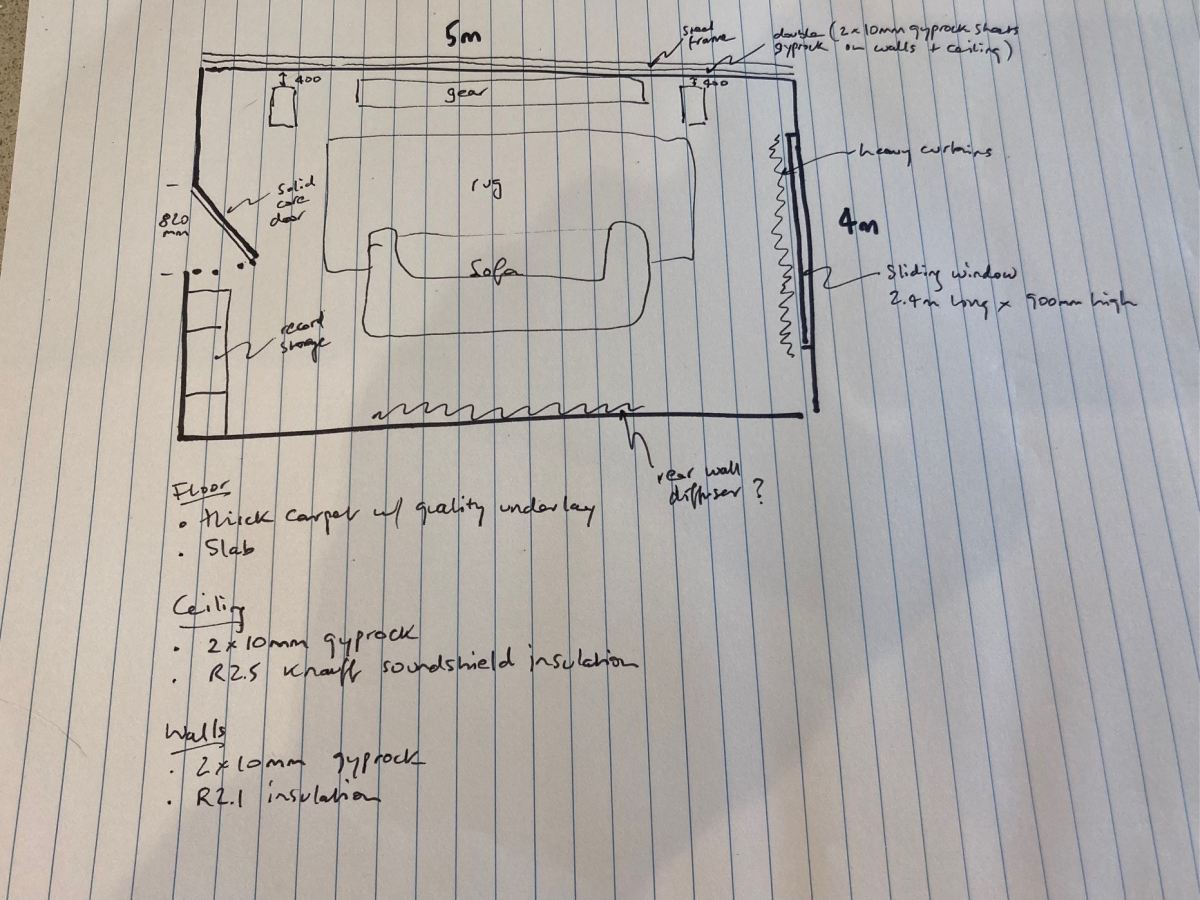 5m
steel
frame
double (2x10mm gyprock sheets
gyprock on walls + ceiling)
400
gear
400
rug
heavy curtains
solid
core
door
820
mm
4m
Sofa
Sliding window
2.4m long x 900mm high
record
storage
rear wall
diffuser?
Floor
• thick carpet w/ quality underlay
• Slab
Ceiling
• 2x10mm gyprock
• R2.5 Knauff soundshield insulation
Walls
• 2x10mm gyprock
• R2.1 insulation